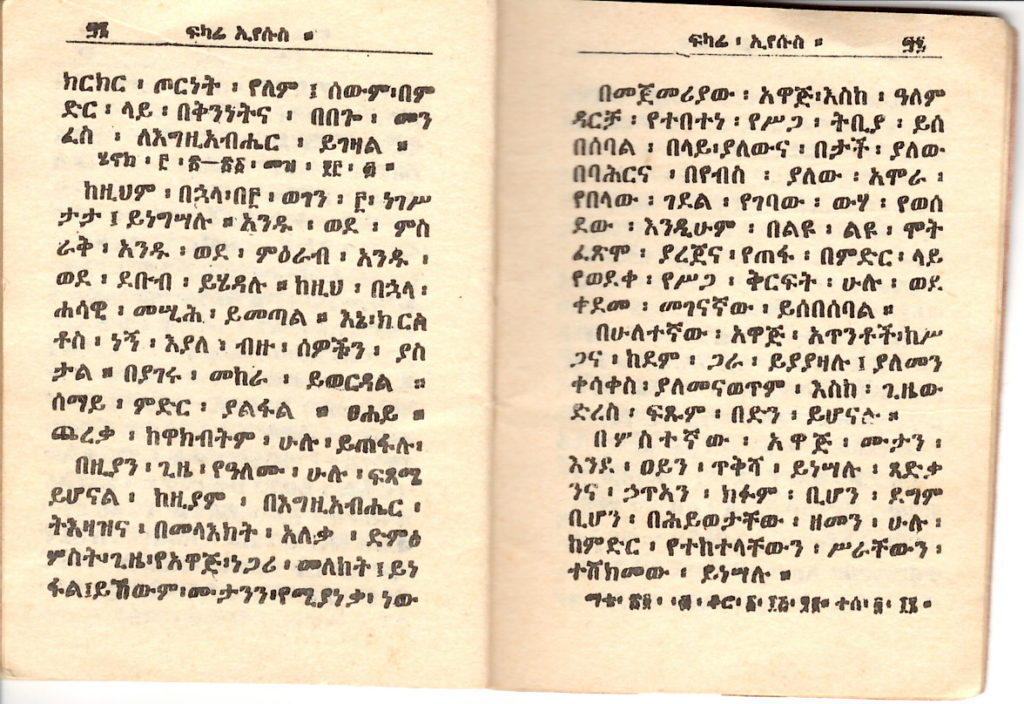 ፶፬ ፍካሬ ኢየሱስ ።
ክርክር ፡ ጦርነት ፡ የለም ፤ ሰውም፡በም
ድር ፡ ላይ ፡ በቅንነትና ፡ በበጎ ፡ መን
ፈስ ፡ ለእግዚአብሔር ፡ ይገዛል ።
ሄኖክ ፡
ከዚህም ፡ በኋላ፡በ፫ ፡ ወገን ፡ ፫፡ ነገሥ
ታታ ፤ ይነግሣሉ ። አንዱ ፡ ወደ ፡ ምስ
ራቅ ፡ አንዱ ፡ ወደ ፡ ምዕራብ ፡ አንዱ ፡
ወደ ፡ ደቡብ ፡ ይሄዳሉ ። ከዚህ ፡ በኋላ፡
ሐሳዊ ፡ መሢሕ ፡ ይመጣል ። እኔ፡ክርስ
ቶስ ፡ ነኝ ፡ እያለ ፡ ብዙ ፡ ሰዎችን ፡ ያስ
ታል ። በያገሩ ፡ መከራ ፡ ይወርዳል ።
ሰማይ ፡ ምድር ፡ ያልፋል ። ፀሐይ ።
ጨረቃ ፡ ከዋክብትም ፡ ሁሉ ፡ ይጠፋሉ፡
በዚያን ፡ ጊዜ ፡ የዓለሙ ፡ ሁሉ ፡ ፍጻሜ
ይሆናል ፡ ከዚያም ፡ በእግዚአብሔር ፡
ትእዛዝና ፡ በመላእክት ፡ አለቃ ፡ ድምፅ
ሦስት፡ጊዜ፡የአዋጅ፡ነጋሪ ፡ መለከት ፤ ይነ
ፋል፤ይኸውም፡ሙታንን፡የሚያነቃ፡ ነው
ፍካሬ ፡ ኢየሱስ ። ፶፭
በመጀመሪያው ፡ አዋጅ፡እስከ ፡ ዓለም
ዳርቻ ፡ የተበተነ ፡ የሥጋ ፡ ትቢያ ፡ ይሰ
በሰባል ፡ በላይ፡ያለውና ፡ በታች ፡ ያለው
በባሕርና ፡ በየብስ ፡ ያለው ፡ አሞራ ፡
የበላው ፡ ገደል ፡ የገባው ፡ ውሃ ፡ የወሰ
ደው ፡ እንዲሁም ፡ በልዩ ፡ ልዩ ፡ ሞት
ፈጽሞ ፡ ያረጀና ፡ የጠፋ ፡ በምድር ፡ ላይ
የወደቀ ፡ የሥጋ ፡ ቅርፍት ፡ ሁሉ ፡ ወደ
ቀደመ ፡ መገናኛው ፡ ይሰበሰባል ።
በሁለተኛው ፡ አዋጅ ፡ አጥንቶች፡ከሥ
ጋና ፡ ከደም ፡ ጋራ ፡ ይያያዛሉ ፤ ያለመን
ቀሳቀስ፡ያለመናወጥም ፡ እስከ ፡ ጊዜው
ድረስ ፡ ፍጹም ፡ በድን ፡ ይሆናሉ ።
በሦስተኛው ፡ አዋጅ ፡ ሙታን ፡
እንደ ፡ ዐይን ፡ ጥቅሻ ፡ ይነሣሉ ፡ ጻድቃ
ንና ፡ ኃጥኣን ፡ ክፉም ፡ ቢሆን ፡ ደግም
ቢሆን ፡ በሕይወታቸው ፡ ዘመን ፡ ሁሉ ፡
ከምድር ፡ የተከተላቸውን ፡ ሥራቸውን ፡
ተሸክመው ፡ ይነሣሉ ።
ማቴ፡ ቆሮ፡ ተሰ፡